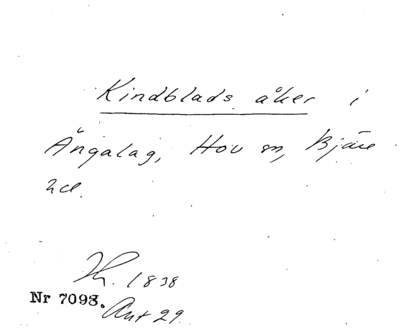 Kindblads åker i
Ängalag, Hov sn, Bjäre
hd.
Th. 1838
Nr 7093.
Ant 29